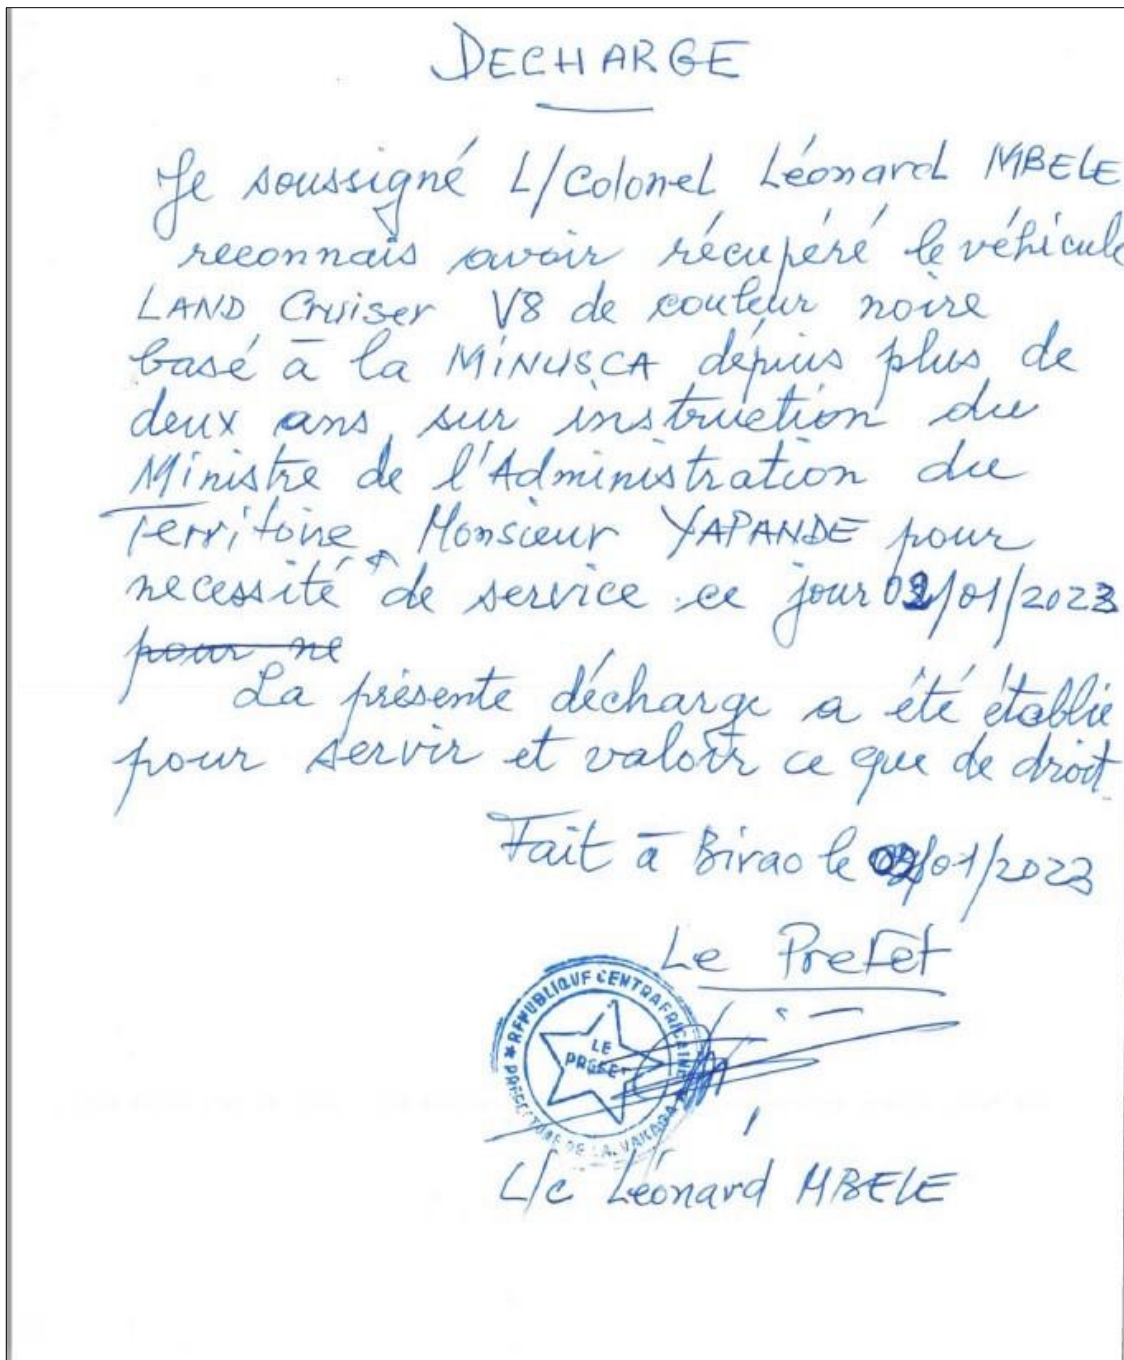 DECHARGE
Je soussigné L/Colonel Léonard MBELE
reconnais avoir récupéré le véhicule
LAND Cruiser V8 de couleur noire
basé à la MINUSCA dépuis plus de
deux ans sur instruction du
Ministre de l'Administration du
Territoire, Monsieur YAPANDE pour
necessité de service ce jour /01/2023
pour ne
La présente décharge a été établie
pour servir et valoir ce que de droit.
Fait à Birao le /01/2023
Le Prefet
REPUBLIQUE CENTRAFRICAINE
LE
PREFET
PREFECTURE DE LA VAKAGA
L/c Léonard MBELE